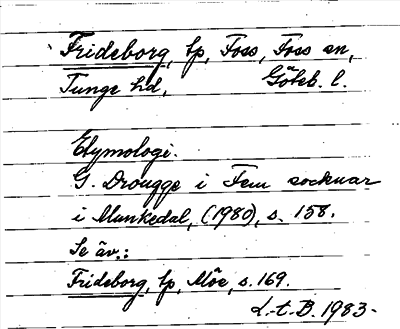 Frideborg, tp, Foss, Foss sn,
Tunge hd, Göteb. l.
Etymologi.
G. Drougge i Fem socknar
i Munkedal, (1980), s. 158.
Se äv.:
Frideborg, tp, Möe, s. 169.
L-t-B. 1983.